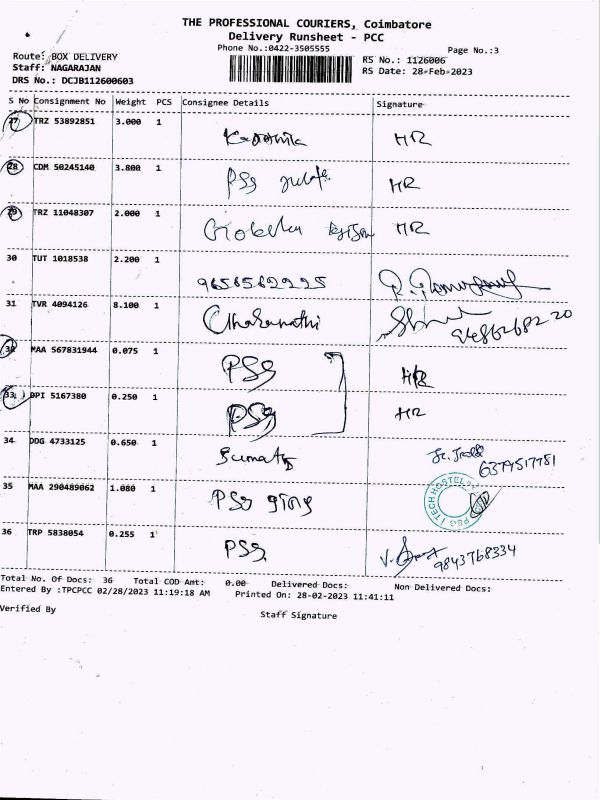 THE PROFESSIONAL COURIERS, Coimbatore
Delivery Runsheet - PCC
Phone No.:0422-3505555
Page No.:3
Route: BOX DELIVERY
RS No.: 1126006
Staff: NAGARAJAN
RS Date: 28-Feb-2023
DRS No.: DCJB112600603
S No Consignment No Weight PCS Consignee Details Signature
27 TRZ 53892851 3.000 1 HR
28 CDM 50245140 3.800 1 PSG HR
29 TRZ 11048307 2.000 1 HR
30 TUT 1018538 2.200 1 9656562225
31 TVR 4094126 8.100 1
9486268220
32 MAA 567831944 0.075 1 PSG HR
33 DPI 5167380 0.250 1 PSG HR
34 DDG 4733125 0.650 1
6379517781
35 MAA 290489062 1.080 1 PSG
PSG iTECH HOSTEL
36 TRP 5838054 0.255 1 PSG
9843768334
Total No. Of Docs: 36 Total COD Amt: 0.00 Delivered Docs: Non Delivered Docs:
Entered By :TPCPCC 02/28/2023 11:19:18 AM Printed On: 28-02-2023 11:41:11
Verified By
Staff Signature